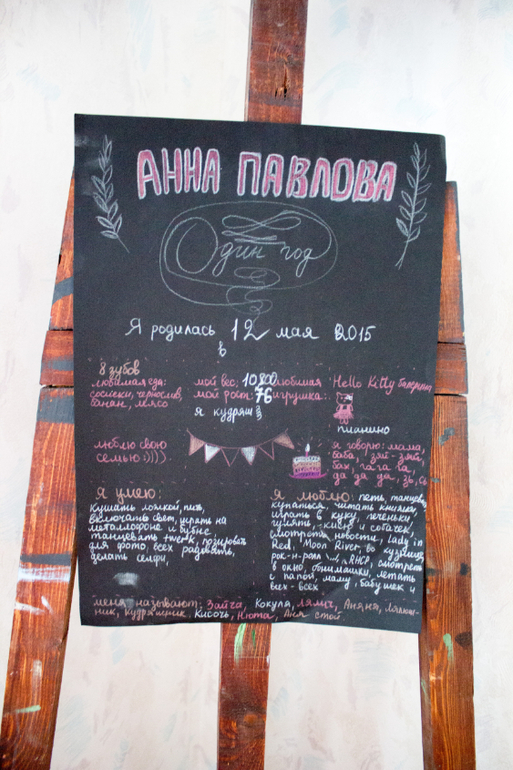 АННА ПАВЛОВА
Один год
Я родилась 12 мая 2015
8 зубов
любимая еда:
сосиски, чернослив,
банан, мясо
мой вес: 10 800
мой рост: 76
я кудряш
любимая
игрушка:
Hello Kitty балерина
пианино
люблю свою
семью :))))
я говорю: мама,
баба, зяй-зяй,
бах, га га га,
да да да,
Я умею:
кушать ложкой, пить,
включать свет, играть на
металлофоне и бубне
танцевать twerk, позировать
для фото, всех радовать,
делать селфи,
Я люблю: петь, танцевать,
купаться, читать книжки,
играть в куку, печеньки
гулять, кисю и собачек
смотреть новости, Lady in
Red, Moon River,
рок-н-ролл и RHCP, смотреть
в окно, обнимашки, летать
с папой, маму, бабушек и
всех-всех
меня называют: Зайча, Кокула, Лялич, Аняня,
Кисоч, Нюта, Аня стой